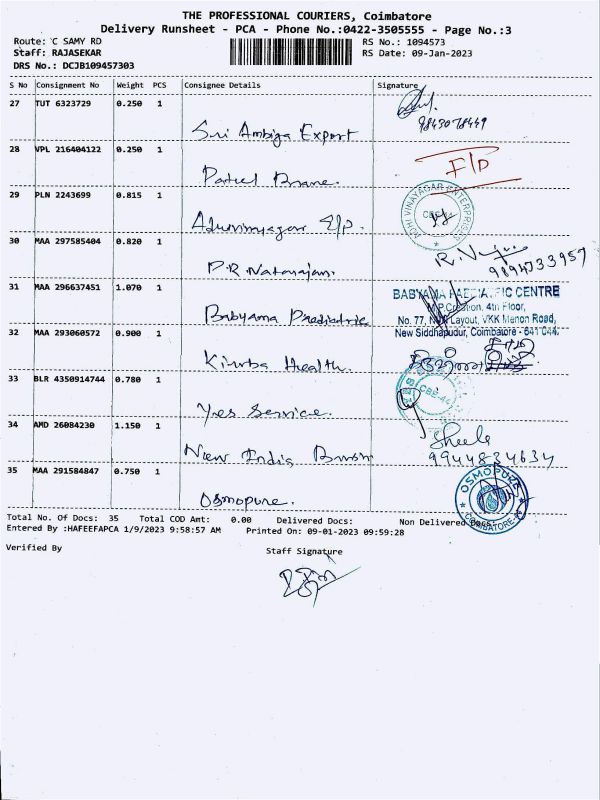 THE PROFESSIONAL COURIERS, Coimbatore
Delivery Runsheet - PCA - Phone No.:0422-3505555 - Page No.:3
Route: 'C SAMY RD
RS No.: 1094573
Staff: RAJASEKAR
RS Date: 09-Jan-2023
DRS No.: DCJB109457303
S No Consignment No Weight PCS Consignee Details Signature
27 TUT 6323729 0.250 1
9843078449
Sri Ambiga Export
28 VPL 216404122 0.250 1
F/D
29 PLN 2243699 0.815 1
30 MAA 297585404 0.820 1
R.
9894733957
P.R. Natarajan.
31 MAA 296637451 1.070 1
BABYAMA PAEDIATRIC CENTRE
4th Floor,
Babyama Paediatric
No. 77, Layout, VKK Menon Road,
New Siddhapudur, Coimbatore - 641 044.
32 MAA 293060572 0.900 1
Health.
33 BLR 4350914744 0.780 1
Yes Service.
34 AMD 26084230 1.150 1
Sheela
9944834634
New India
35 MAA 291584847 0.750 1
OSMOPURE
COIMBATORE
Osmopure.
Total No. Of Docs: 35 Total COD Amt: 0.00 Delivered Docs: Non Delivered Docs:
Entered By :HAFEEFAPCA 1/9/2023 9:58:57 AM Printed On: 09-01-2023 09:59:28
Verified By Staff Signature